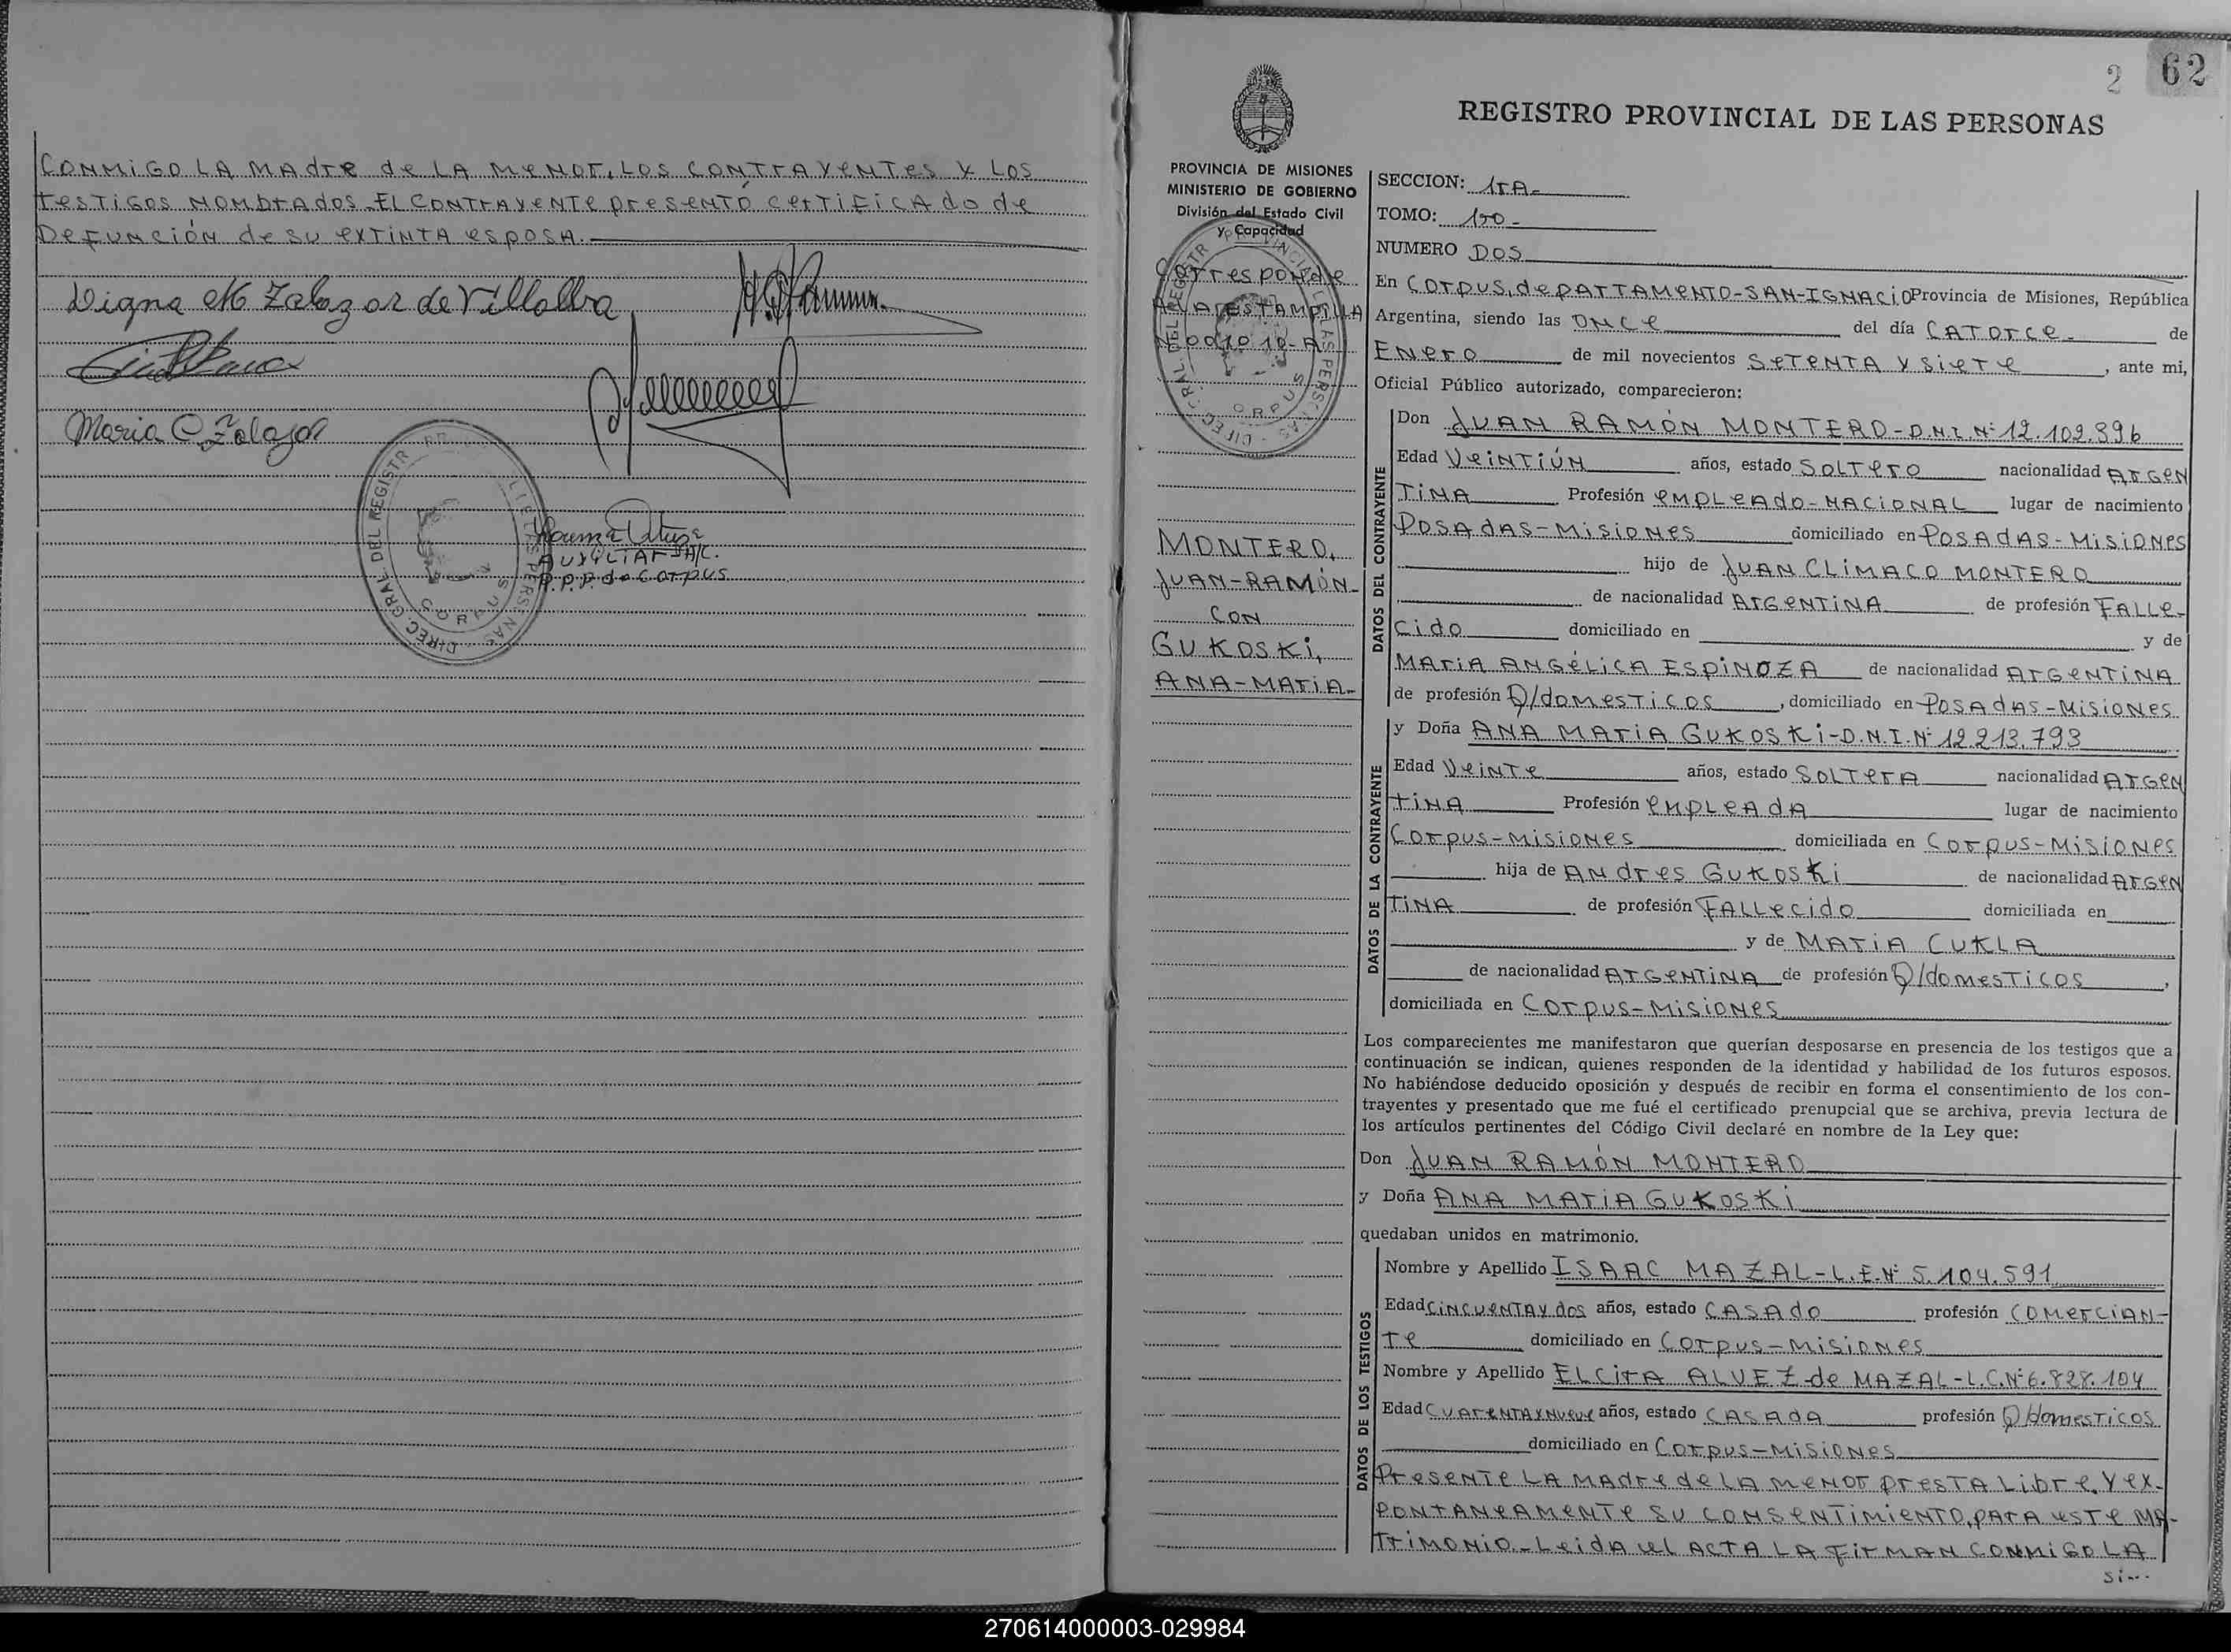 CONMIGO LA MADRE de LA MENOR, LOS CONTRAYENTES Y LOS
TESTIGOS NOMBRADOS. EL CONTRAYENTE PRESENTÓ CERTIFICADO de
DEFUNCIÓN de SU EXTINTA ESPOSA.
Digna M. Zalazar de Villalba
Maria C. Zalazar
AUXILIAR A/C.
R.P.P. de CORPUS
2 62
REGISTRO PROVINCIAL DE LAS PERSONAS
PROVINCIA DE MISIONES
MINISTERIO DE GOBIERNO
División del Estado Civil
y Capacidad
Corresponde
A LA ESTAMPILLA
MONTERO,
JUAN-RAMÓN
CON
GUKOSKI,
ANA-MARIA-
SECCION: 1rA-
TOMO: 1ro-
NUMERO DOS
En CORPUS, dePARTAMENTO-SAN-IGNACIO Provincia de Misiones, República
Argentina, siendo las ONCE del día CATORCE de
ENERO de mil novecientos SETENTA Y SIETE, ante mi,
Oficial Público autorizado, comparecieron:
DATOS DEL CONTRAYENTE
Don JUAN RAMÓN MONTERO-D.N.I. Nº 12.109.896
Edad VEINTIÚN años, estado SOLTERO nacionalidad ARGEN
TINA Profesión EMPLEADO-NACIONAL lugar de nacimiento
POSADAS-MISIONES domiciliado en POSADAS-MISIONES
hijo de JUAN CLIMACO MONTERO
de nacionalidad ARGENTINA de profesión FALLE-
CIDO domiciliado en y de
MARIA ANGÉLICA ESPINOZA de nacionalidad ARGENTINA
de profesión Q/DOMESTICOS, domiciliado en POSADAS-MISIONES
DATOS DE LA CONTRAYENTE
y Doña ANA MARIA GUKOSKI-D.N.I. Nº 12.213.793
Edad VEINTE años, estado SOLTERA nacionalidad ARGEN
TINA Profesión EMPLEADA lugar de nacimiento
CORPUS-MISIONES domiciliada en CORPUS-MISIONES
hija de ANDRES GUKOSKI de nacionalidad ARGEN
TINA de profesión FALLECIDO domiciliada en
y de MARIA CUKLA
de nacionalidad ARGENTINA de profesión Q/DOMESTICOS,
domiciliada en CORPUS-MISIONES
Los comparecientes me manifestaron que querían desposarse en presencia de los testigos que a
continuación se indican, quienes responden de la identidad y habilidad de los futuros esposos.
No habiéndose deducido oposición y después de recibir en forma el consentimiento de los con-
trayentes y presentado que me fué el certificado prenupcial que se archiva, previa lectura de
los artículos pertinentes del Código Civil declaré en nombre de la Ley que:
Don JUAN RAMÓN MONTERO
y Doña ANA MARIA GUKOSKI
quedaban unidos en matrimonio.
DATOS DE LOS TESTIGOS
Nombre y Apellido ISAAC MAZAL-L.E. Nº 5.104.591
Edad CINCUENTA Y DOS años, estado CASADO profesión COMERCIAN-
TE domiciliado en CORPUS-MISIONES
Nombre y Apellido ELCITA ALVEZ de MAZAL-L.C. Nº 6.828.104
Edad CUARENTA Y NUEVE años, estado CASADA profesión Q/DOMESTICOS
domiciliado en CORPUS-MISIONES
PRESENTE LA MADRE de LA MENOR PRESTA LIBRE, Y EX-
PONTANEAMENTE SU CONSENTIMIENTO, PARA ESTE MA-
TRIMONIO.-LEIDA EL ACTA LA FIRMAN CONMIGO LA
si...
270614000003-029984